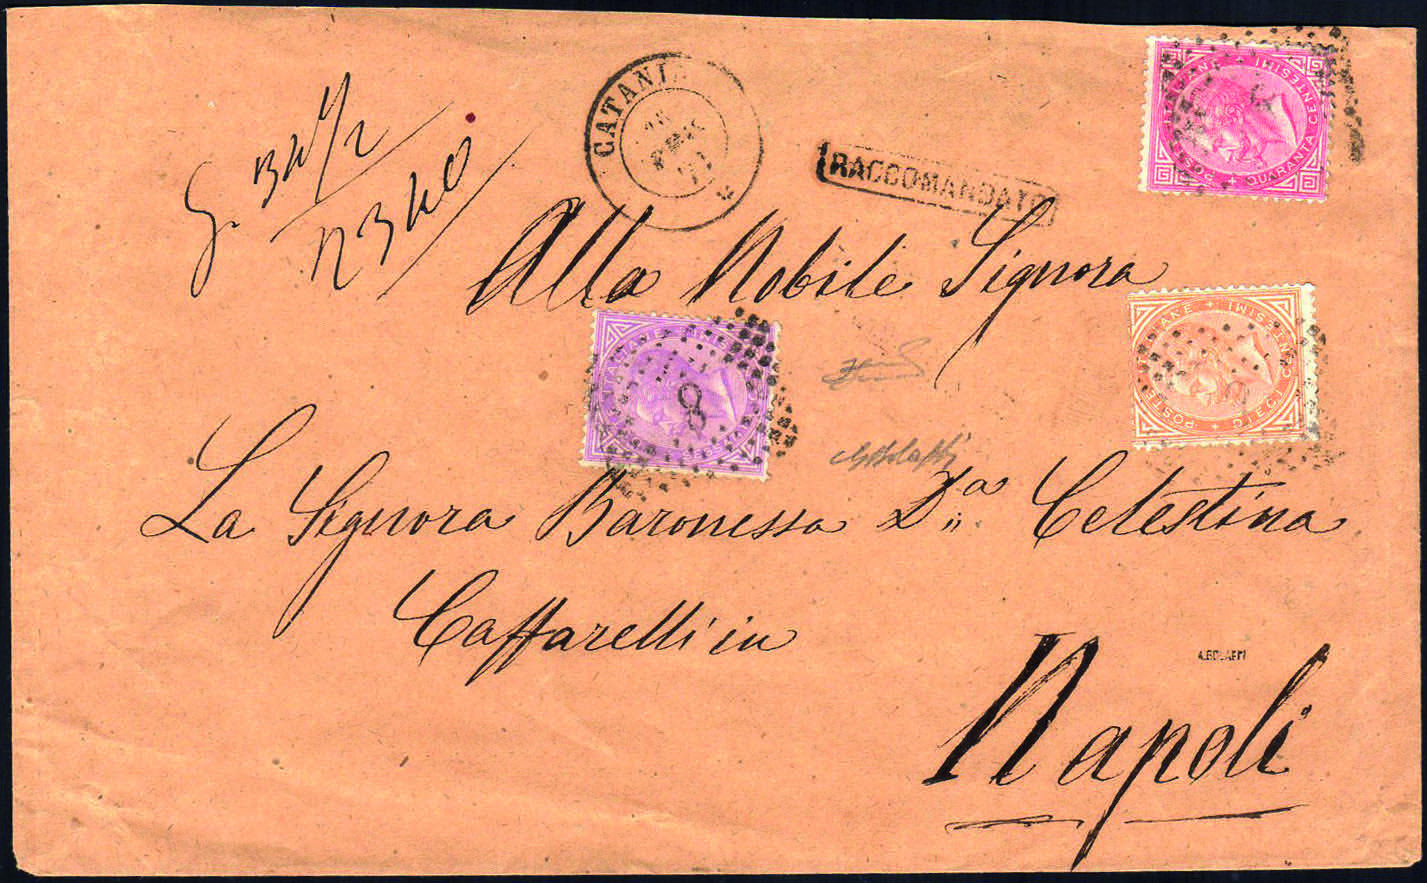 CATANIA
RACCOMANDATO
POSTE ITALIANE + QUARANTA CENTESIMI +
Alla Nobile Signora
POSTE ITALIANE + DIECI CENTESIMI +
8
La Signora Baronessa D.a Celestina
Caffarelli in
A.BOLAFFI
Napoli